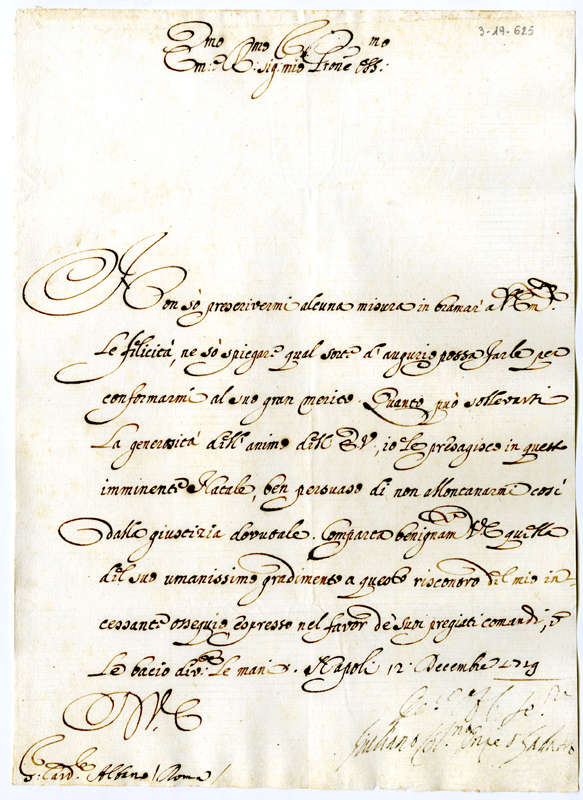 3-19-625
Em.mo e R.mo Sig.r mio P̃rone Oss.mo
Non sò prescrivermi alcuna misura in bramar' a V. Em.za
Le felicità, ne sò spiegar qual sorte d'augurio possa farle per
conformarmi al suo gran merito. Quanto può sollevarsi
La generosità dell'animo dell'E. V., io Le presagisco in quest'
imminente Natale, ben persuaso di non allontanarmi così
dalla giustizia dovutale. Comparta benignam.te V. E. quella
del suo umanissimo gradimento a questo riscontro del mio in=
cessante ossequio espresso nel favor de' suoi pregiati comandi, e
Le bacio div.te Le mani. Napoli 12 Decembre 1719
D. V. E.
S. Card.le Albano / Roma /
Giuliano Col.na